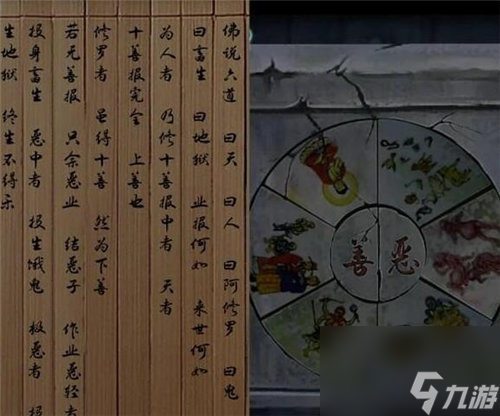 佛说六道 曰天 曰人 曰阿修罗 曰鬼
曰畜生 曰地狱 业报何如 来世何如
为人者 乃修十善报中者 天者
十善报完全 上善也
修罗者 虽得十善 然为下善
若无善报 只余恶业 结恶子 作业恶轻者
报身畜生 恶中者 报生饿鬼 极恶者 报
生地狱 终生不得乐
善 恶
九游